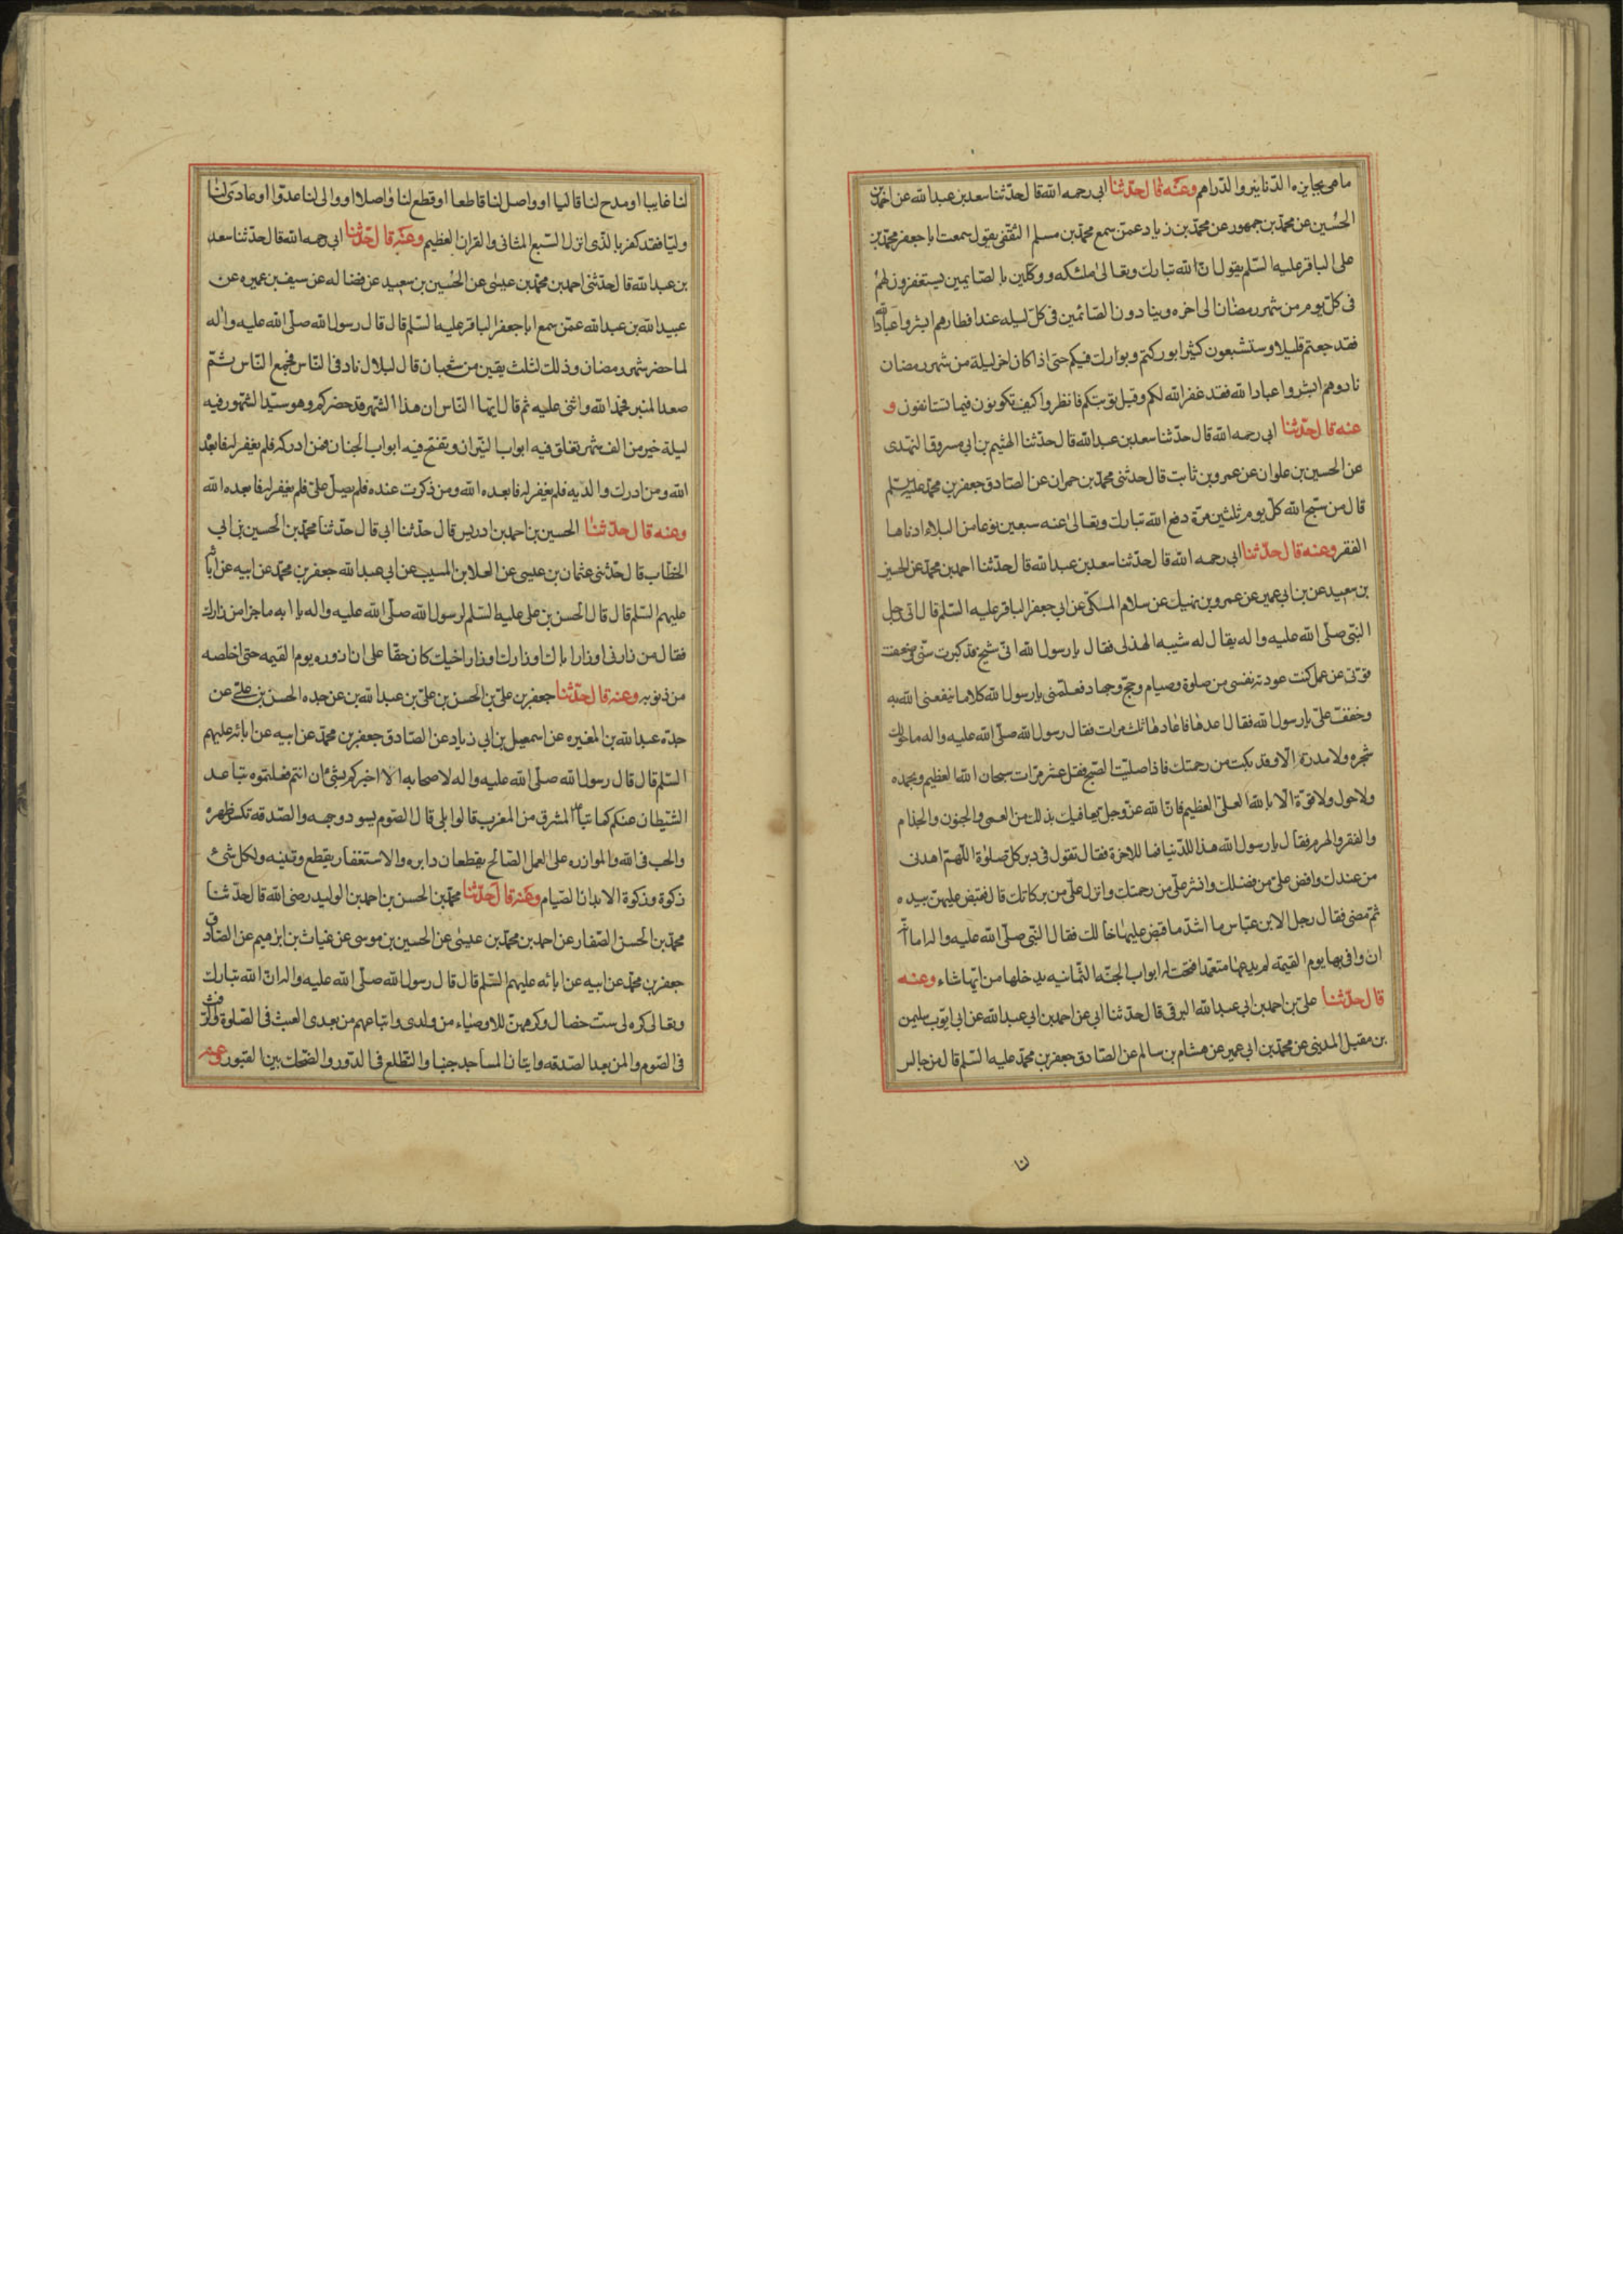 ما هى بجايزه الدنانير والدراهم وعنه قال حدثنا ابى رحمه الله قال حدثنا سعد بن عبد الله عن احمد بن
الحسين عن محمد بن جمهور عن محمد بن زياد عمن سمع محمد بن مسلم الثقفى يقول سمعت ابا جعفر محمد بن
على الباقر عليه السلم يقول ان الله تبارك وتعالى ملئكه ووكلين بالصايمين يستغفرون لهم
فى كل يوم من شهر رمضان الى اخره وينادون الصائمين فى كل ليله عند افطارهم ابشروا عباد الله
فقد جعتم قليلا وستشبعون كثيرا بوركتم وبوارك فيكم حتى اذا كان اخر ليلة من شهر رمضان
نادوهم ابشروا عباد الله فقد غفر الله لكم وقبل توبتكم فانظروا كيف تكونون فيما تستانفون و
عنه قال حدثنا ابى رحمه الله قال حدثنا سعد بن عبد الله قال حدثنا الهثيم بن ابى مسروق النهدى
عن الحسين بن علوان عن عمرو بن ثابت قال حدثنى محمد بن حمران عن الصادق جعفر بن محمد عليه السلم
قال من سبح الله كل يوم ثلثين مرة دفع الله تبارك وتعالى عنه سبعين نوعا من البلاء ادناها
الفقر وعنه قال حدثنا ابى رحمه الله قال حدثنا سعد بن عبد الله قال حدثنا احمد بن محمد عن الحسين
بن سعيد عن بن ابى عمير عن عمرو بن نهيك عن سلام المكى عن ابى جعفر الباقر عليه السلم قال اتى رجل
النبى صلى الله عليه واله يقال له شيبه الهذلى فقال يا رسول الله انى شيخ قد كبرت سنى وضعفت
قوتى عن عمل كنت عودته نفسى من صلوة وصيام وحج وجهاد فعلمنى يا رسول الله كلاما ينفعنى الله به
وخفف على يا رسول الله فقال اعدها فاعادها ثلث مرات فقال رسول الله صلى الله عليه واله ما حولك
شجره ولا مدرة الا وقد بكت من رحمتك فاذا صليت الصبح فقل عشر مرات سبحان الله العظيم وبحمده
ولا حول ولا قوة الا بالله العلى العظيم فان الله عز وجل يعافيك بذلك من العمى والجنون والجذام
والفقر والهرم فقال يا رسول الله هذا للدنيا فما للاخرة فقال تقول فى دبر كل صلوة اللهم اهدنى
من عندك وافض على من فضلك وانشر على من رحمتك وانزل على من بركاتك قال فقبض عليهن بيده
ثم مضى فقال رجل الابن عباس ما اشد ما قبض عليها خالك فقال النبى صلى الله عليه واله اما انه
ان وافى بها يوم القيمه لم يدعها متعمدا فتحت له ابواب الجنه الثمانيه يدخلها من ايها شاء وعنه
قال حدثنا على بن احمد بن ابى عبد الله البرقى قال حدثنا ابى عن احمد بن ابى عبد الله عن ابى ايوب سليمن
بن مقبل المدينى عن محمد بن ابى عمير عن هشام بن سالم عن الصادق جعفر بن محمد عليه السلم قال من جالس
لنا
لنا غايبا او مدح لنا قاليا او واصل لنا قاطعا او قطع لنا واصلا او والى لنا عدوا او عادى لنا
وليا فقد كفر بالذى انزل السبع المثانى والقران العظيم وعنه قال حدثنا ابى رحمه الله قال حدثنا سعد
بن عبد الله قال حدثنى احمد بن محمد بن عيسى عن الحسين بن سعيد عن فضاله عن سيف بن عميره عن
عبيد الله بن عبد الله عمن سمع ابا جعفر الباقر عليه السلم قال قال رسول الله صلى الله عليه واله
لما حضر شهر رمضان وذلك لثلث بقين من شعبان قال لبلال ناد فى الناس فجمع الناس ثم
صعد المنبر فحمد الله واثنى عليه ثم قال ايها الناس ان هذا الشهر قد حضركم وهو سيد الشهور فيه
ليلة خير من الف شهر تغلق فيه ابواب النيران وتفتح فيه ابواب الجنان فمن ادركه فلم يغفر له فابعده
الله ومن ادرك والديه فلم يغفر له فابعده الله ومن ذكرت عنده فلم يصل على فلم يغفر له فابعده الله
وعنه قال حدثنا الحسين بن احمد بن ادريس قال حدثنا ابى قال حدثنا محمد بن الحسين بن ابى
الخطاب قال حدثنى عثمان بن عيسى عن العلا بن المسيب عن ابى عبد الله جعفر بن محمد عن ابيه عن ابائه
عليهم السلم قال قال الحسن بن على عليه السلم لرسول الله صلى الله عليه واله يا ابه ما جزا من زارك
فقال من زارنى او زار اباك او زارك او زار اخيك كان حقا على ان ازوره يوم القيمه حتى اخلصه
من ذنوبه وعنه قال حدثنا جعفر بن على بن الحسن بن على بن عبد الله بن عن جده الحسن بن على عن
جده عبد الله بن المغيره عن اسمعيل بن ابى زياد عن الصادق جعفر بن محمد عن ابيه عن ابائه عليهم
السلم قال قال رسول الله صلى الله عليه واله لاصحابه الا اخبركم بشئ ان انتم فعلتموه تباعد
الشيطان عنكم كما تباعد المشرق من المغرب قالوا بلى قال الصوم يسود وجهه والصدقه تكسر ظهره
والحب فى الله والموازره على العمل الصالح يقطعان دابره والاستغفار يقطع وتينه ولكل شئ
زكوة وزكوة الابدان الصيام وعنه قال حدثنا محمد بن الحسن بن احمد بن الوليد رضى الله قال حدثنا
محمد بن الحسن الصفار عن احمد بن محمد بن عيسى عن الحسين بن موسى عن غياث بن ابرهيم عن الصادق
جعفر بن محمد عن ابيه عن ابائه عليهم السلم قال قال رسول الله صلى الله عليه واله ان الله تبارك
وتعالى كره لى ست خصال وكرههن للاوصياء من ولدى واتباعهم من بعدى العبث فى الصلوة والرفث
فى الصوم والمن بعد الصدقه واتيان المساجد جنبا والتطلع فى الدور والضحك بين القبور وعنه